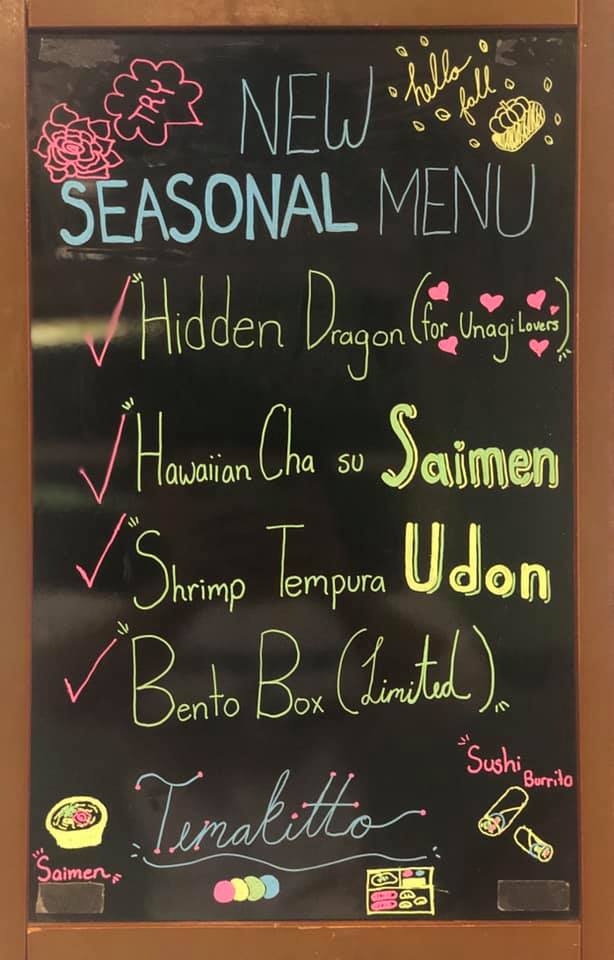 TRY
hello
fall
NEW
SEASONAL MENU
Hidden Dragon (for Unagi Lovers)
Hawaiian Cha su Saimen
Shrimp Tempura Udon
Bento Box (Limited)
Sushi
Burrito
Temakitto
Saimen